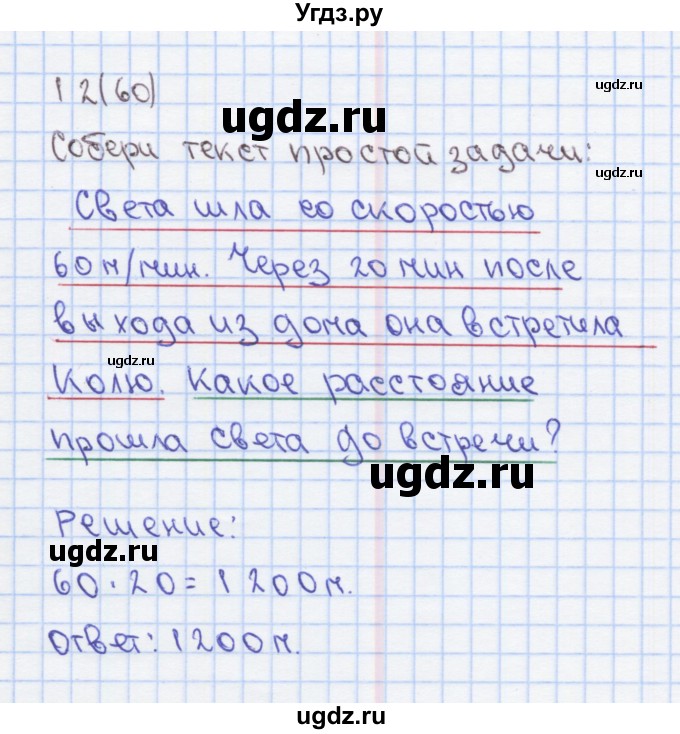 Угдз.ру
ugdz.ru
12(60)
ugdz.ru
Собери текст простой задачи:
ugdz.ru
Света шла со скоростью
60 м/мин. Через 20 мин после
выхода из дома она встретила
ugdz.ru
Колю. Какое расстояние
прошла света до встречи?
ugdz.ru
Решение:
ugdz.ru
60 · 20 = 1 200 м.
Ответ: 1 200 м.
ugdz.ru